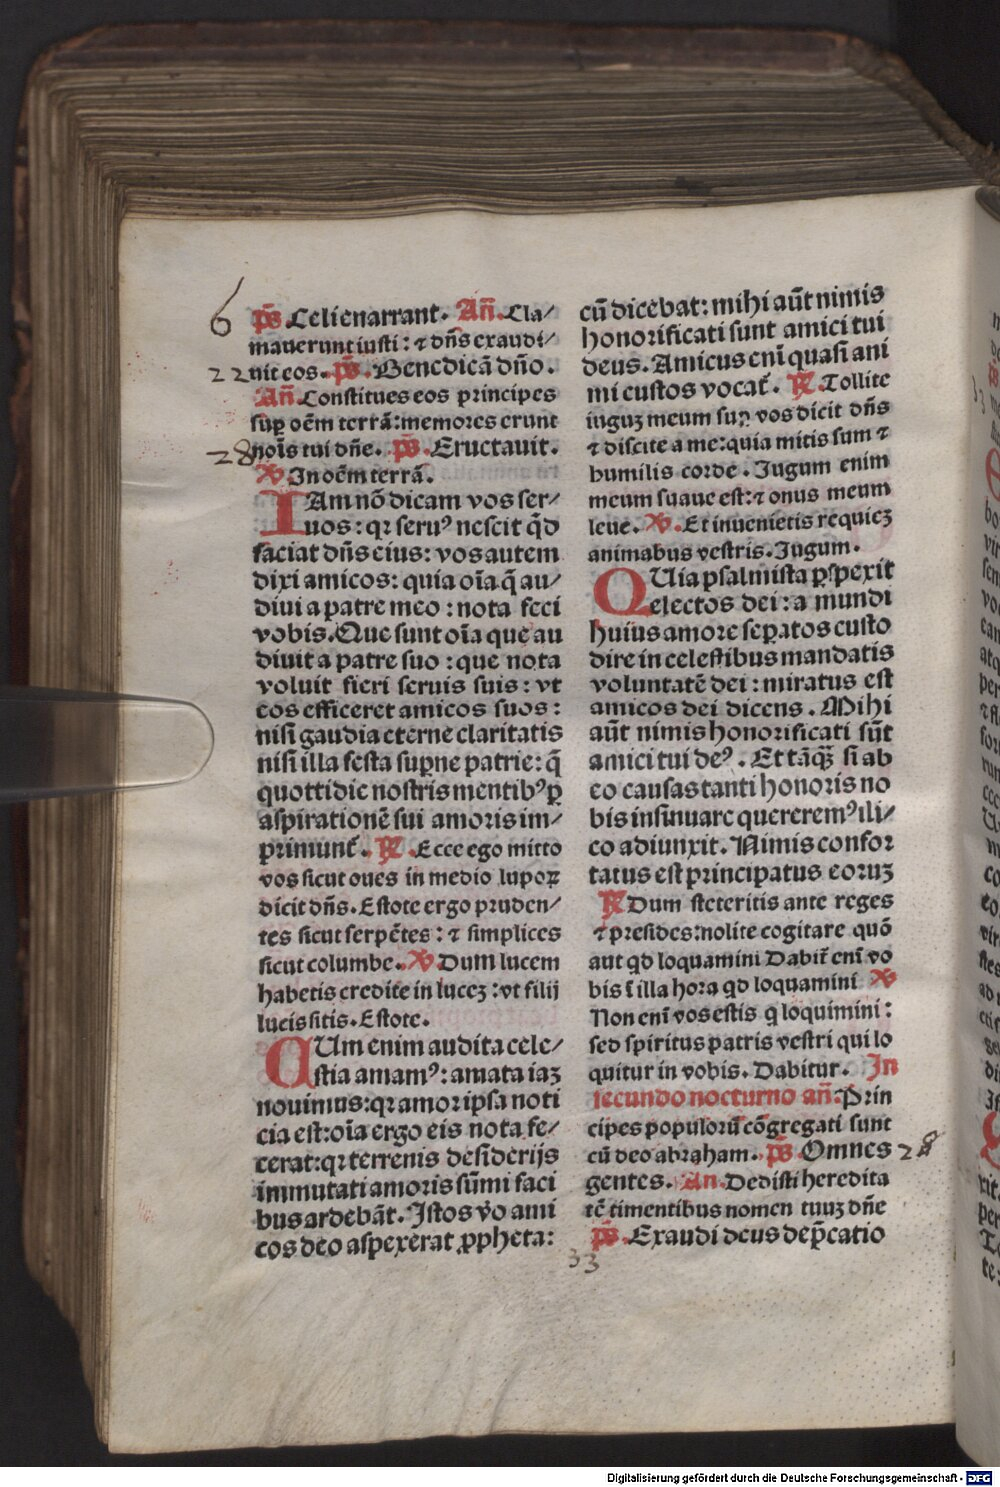 6
p̄s Celi enarrant. Añ. Cla/
mauerunt iusti: ⁊ dn̄s exaudi/
22
uit eos. p̄s. Benedicā dn̄o.
Añ. Constitues eos principes
sup̱ oēm terrā: memores erunt
28
noīs tui dn̄e. p̄s. Eructauit.
℣ In oēm terrā.
IAm nō dicam vos ser/
uos: qꝛ seruꝰ nescit qd̄
faciat dn̄s eius: vos autem
dixi amicos: quia oīa q̄ au/
diui a patre meo: nota feci
vobis. Que sunt oīa que au
diuit a patre suo: que nota
voluit fieri seruis suis: vt
eos efficeret amicos suos:
nisi gaudia eterne claritatis
nisi illa festa sup̱ne patrie: q̄
quottidie nostris mentibꝰ ꝑ
aspirationē sui amoris im/
primunt̄. ℟. Ecce ego mitto
vos sicut oues in medio lupoꝝ
dicit dn̄s. Estote ergo pruden/
tes sicut serpētes: ⁊ simplices
sicut columbe. ℣ Dum lucem
habetis credite in luceꝫ: vt filij
lucis sitis. Estote.
CUm enim audita cele/
stia amamꝰ: amata iaꝫ
nouimus: qꝛ amor ipsa noti
cia est: oīa ergo eis nota fe/
cerat: qꝛ terrenis desiderijs
immutati amoris sūmi faci
bus ardebāt. Istos v̊o ami
cos deo aspexerat ꝓpheta:
cū dicebat: mihi aūt nimis
honorificati sunt amici tui
deus. Amicus enī quasi ani
mi custos vocat̄. ℟. Tollite
iuguꝫ meum sup̱ vos dicit dn̄s
⁊ discite a me: quia mitis sum ⁊
humilis corde. Jugum enim
meum suaue est: ⁊ onus meum
leue. ℣. Et inuenietis requieꝫ
animabus vestris. Jugum.
QUia psalmista ꝑspexit
electos dei: a mundi
huius amore seꝑatos custo
dire in celestibus mandatis
voluntatē dei: miratus est
amicos dei dicens. Mihi
aūt nimis honorificati sūt
amici tui deꝰ. Et tāq̄ꝫ si ab
eo causas tanti honoris no
bis insinuare quereremꝰ ili/
co adiunxit. Nimis confor
tatus est principatus eoruꝫ
℟ Dum steteritis ante reges
⁊ presides: nolite cogitare quō
aut qd loquamini Dabit̄ enī vo
bis ī illa hora qd loquamini ℣
Non enī vos estis q̇ loquimini:
sed spiritus patris vestri qui lo
quitur in vobis. Dabitur. In
secundo nocturno añ. Prin
cipes populorū cōgregati sunt
cū deo abraham. p̄s. Omnes 28
gentes. An. Dedisti heredita
tē timentibus nomen tuuꝫ dn̄e
p̄s. Exaudi deus dep̄catio
33
Digitalisierung gefördert durch die Deutsche Forschungsgemeinschaft - DFG